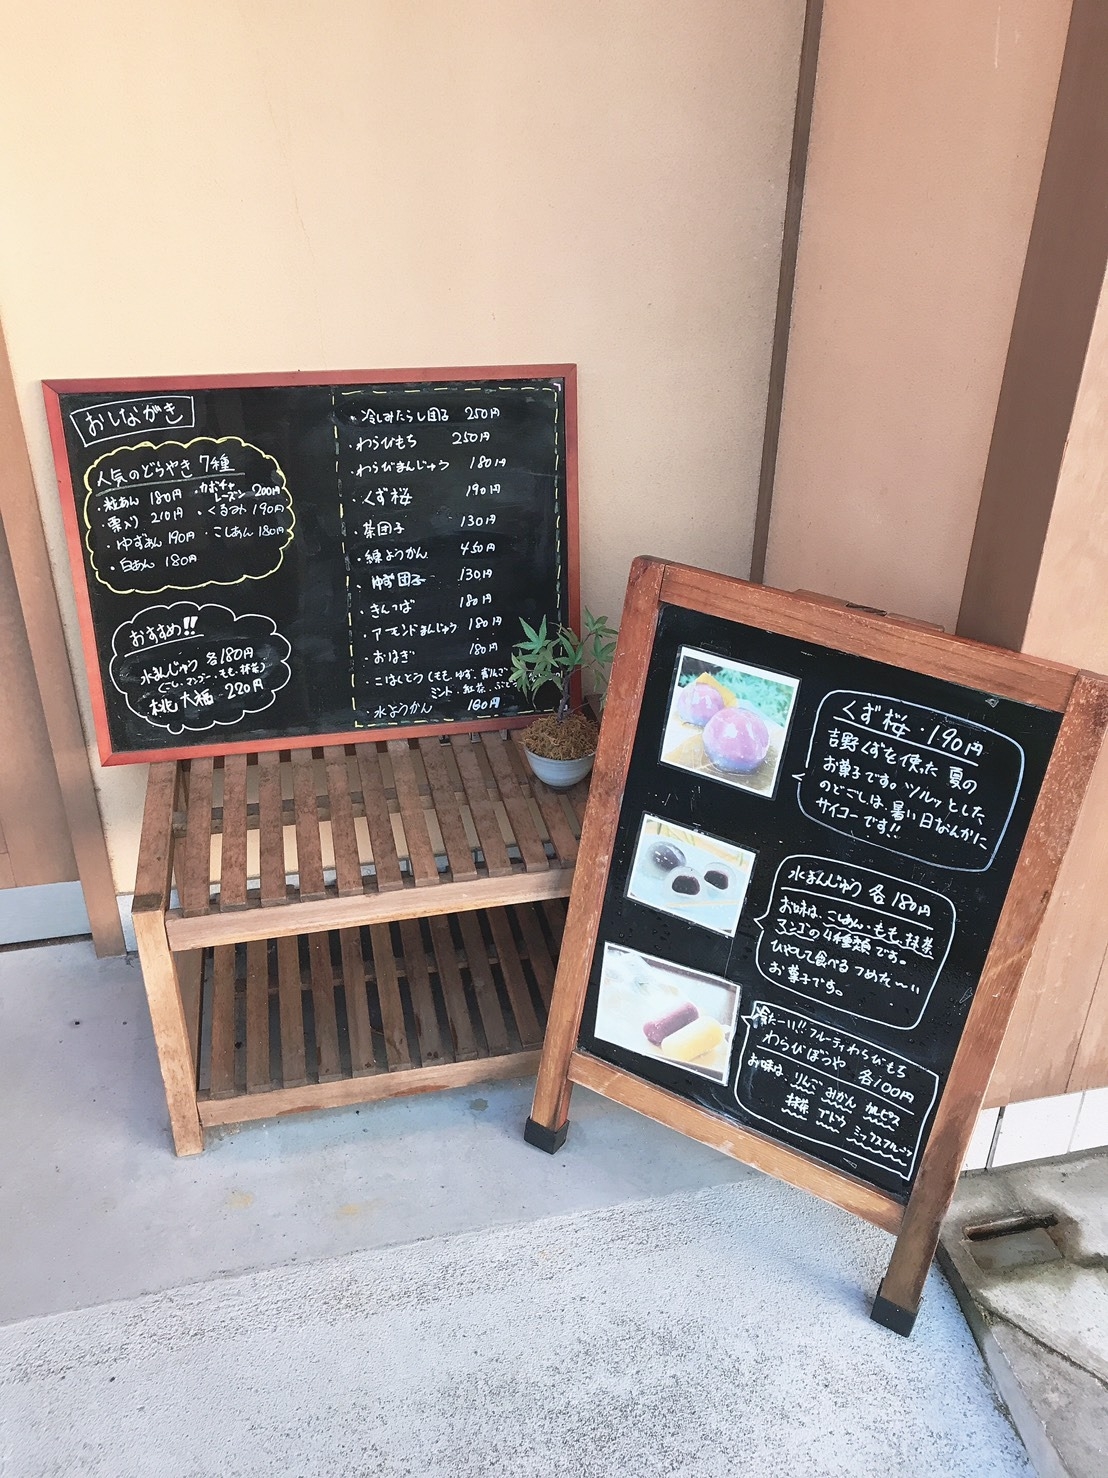 おしながき
人気のどらやき 7種
・粒あん 180円
・栗入り 210円
・ゆずあん 190円
・白あん 180円
・カボチャ
レーズン 200円
・くるみ 190円
・こしあん 180円
おすすめ!!
水まんじゅう 各180円
(こし・マンゴー・もも・抹茶)
桃大福 220円
・冷しみたらし団子 250円
・わらびもち 250円
・わらびまんじゅう 180円
・くず桜 190円
・茶団子 130円
・練ようかん 450円
・ゆず団子 130円
・きんつば 180円
・アーモンドまんじゅう 180円
・おはぎ 180円
・こはくとう(もも、ゆず、青りんご
ミント・紅茶・ぶどう
・水ようかん 180円
くず桜・190円
吉野くずを使った夏の
お菓子です。ツルッとした
のどごしは、暑い日なんかに
サイコーです!!
水まんじゅう 各180円
お味は、こしあん・もも・抹茶
マンゴの4種類です。
ひやして食べるつめた〜い
お菓子です。
冷た〜い!!フルーティわらびもち
わらびぼうや 各100円
お味は、りんご みかん カルピス
抹茶 ブドウ ミックスフルーツ